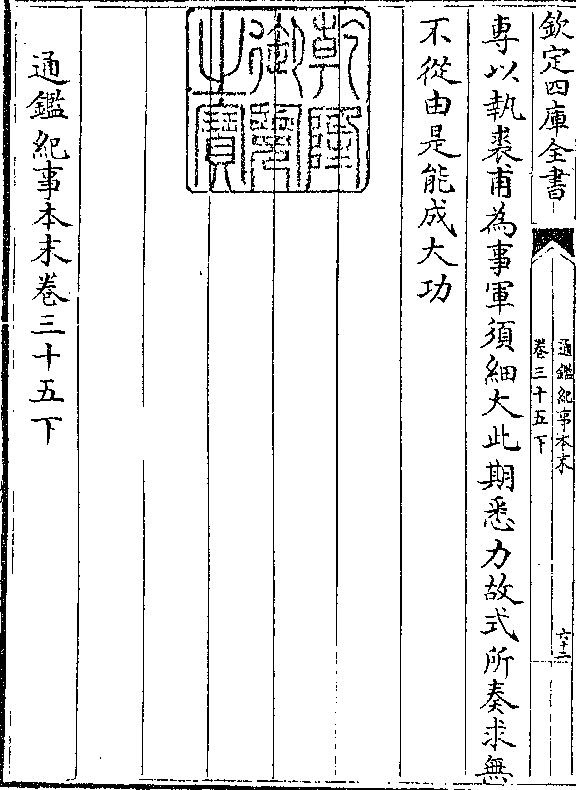 欽定四庫全書
通鑑紀事本末
卷三十五下
六十二
專以執裘甫為事軍須細大此期悉力故式所奏求無
不從由是能成大功
乾隆御覽之寶
通鑑紀事本末卷三十五下